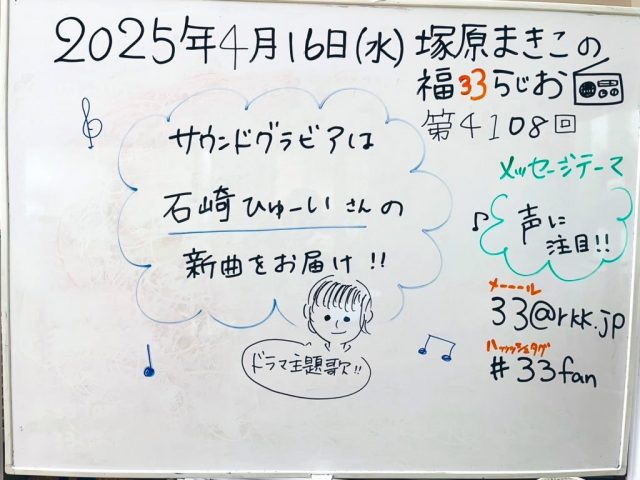 2025年4月16日(水) 塚原まきこの
福33らじお
第4108回
サウンドグラビアは
石崎ひゅーいさんの
新曲をお届け!!
ドラマ主題歌!!
メッセージテーマ
声に
注目!!
メーーール
33@rkk.jp
ハッッシュタグ
#33fan